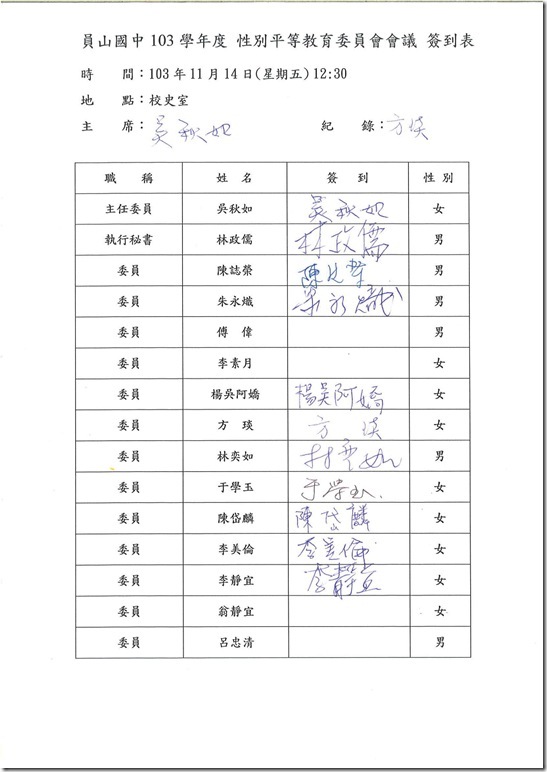 員山國中 103 學年度 性別平等教育委員會會議 簽到表
時 間：103 年 11 月 14 日(星期五) 12:30
地 點：校史室
主 席：吳秋如 紀 錄：方琰
職 稱 姓 名 簽 到 性 別
主任委員 吳秋如 吳秋如 女
執行秘書 林政儒 林政儒 男
委員 陳誌榮 陳誌榮 男
委員 朱永熾 朱永熾 男
委員 傅 偉 男
委員 李素月 女
委員 楊吳阿嬌 楊吳阿嬌 女
委員 方 琰 方 琰 女
委員 林奕如 林奕如 男
委員 于學玉 于學玉 女
委員 陳岱麟 陳岱麟 女
委員 李美倫 李美倫 女
委員 李靜宜 李靜宜 女
委員 翁靜宜 女
委員 呂忠清 男